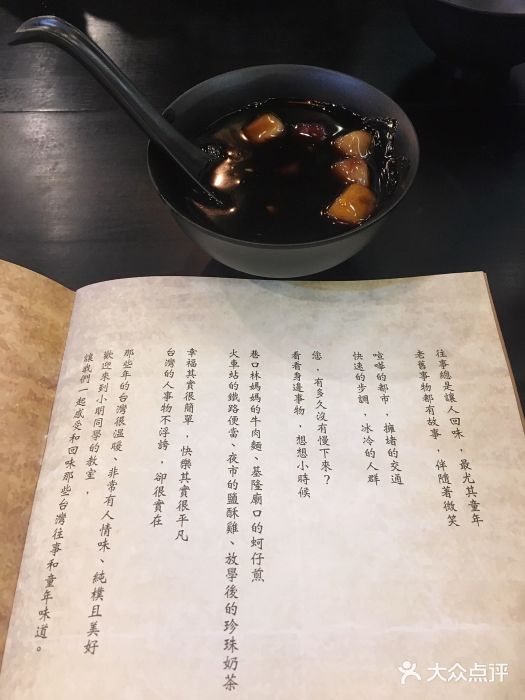 往事總是讓人回味，最尤其童年
老舊事物都有故事，伴隨著微笑
喧嘩的都市，擁堵的交通
快速的步調，冰冷的人群
您，有多久沒有慢下來？
看看身邊事物，想想小時候
巷口林媽媽的牛肉麵、基隆廟口的蚵仔煎
火車站的鐵路便當、夜市的鹽酥雞、放學後的珍珠奶茶
幸福其實很簡單，快樂其實很平凡
台灣的人事物不浮誇，卻很實在
那些年的台灣很溫暖、非常有人情味、純樸且美好
歡迎來到小明同學的教室，
讓我們一起感受和回味那些台灣往事和童年味道。
大众点评